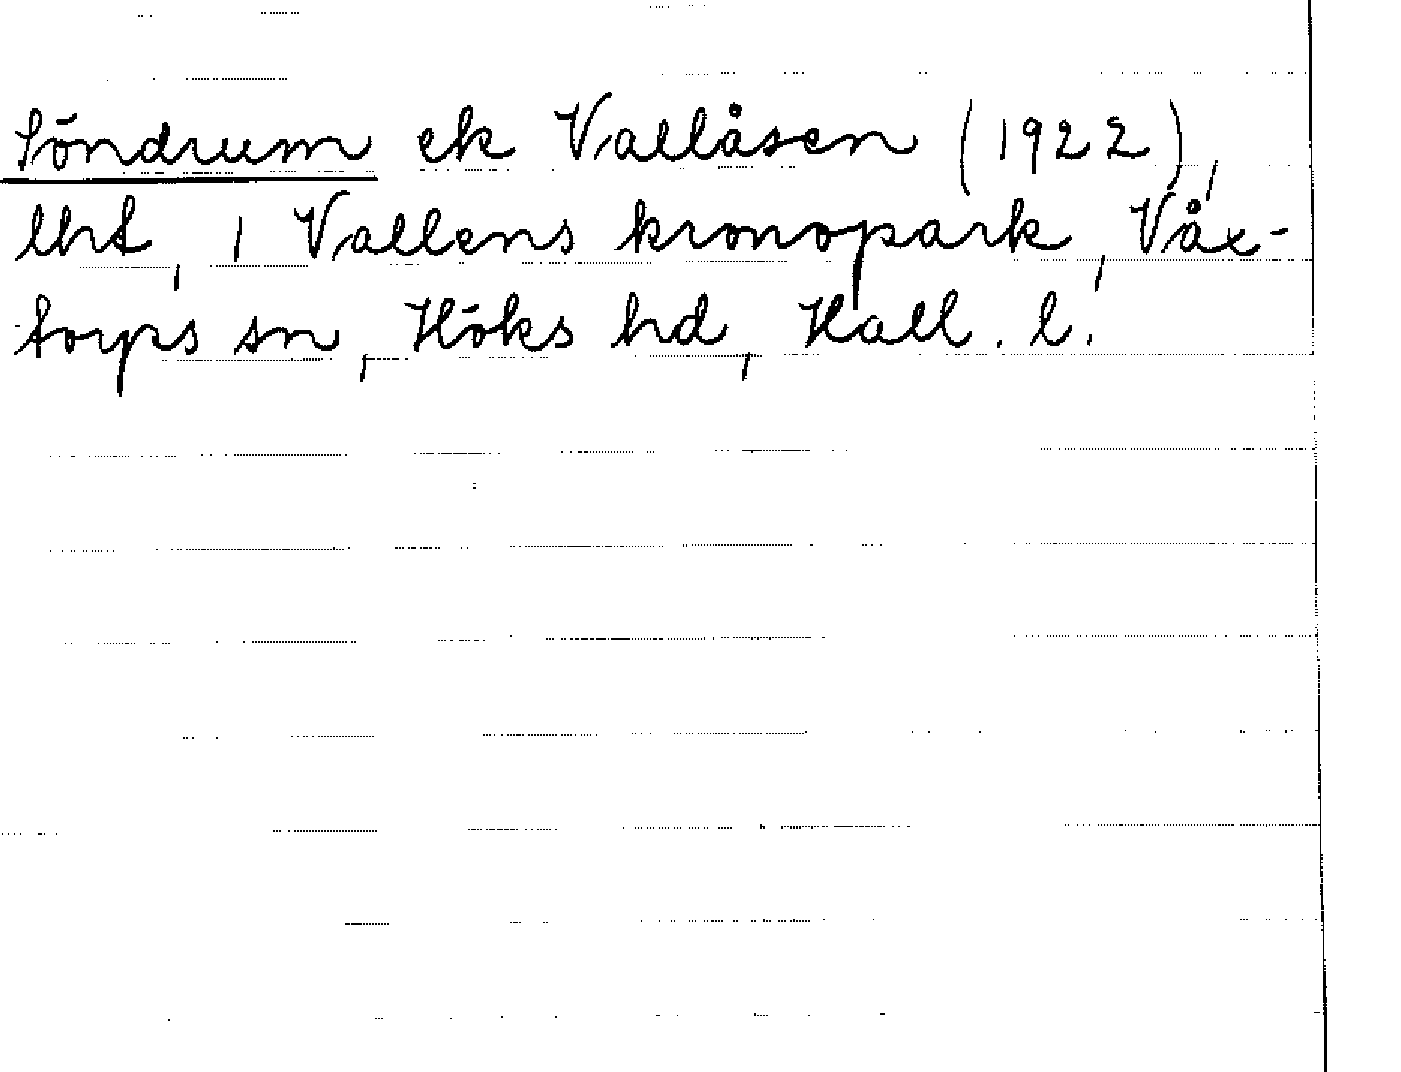 Söndrum ek Vallåsen (1922),
lht, i Vallens kronopark, Våx-
torps sn, Höks hd, Hall. l.